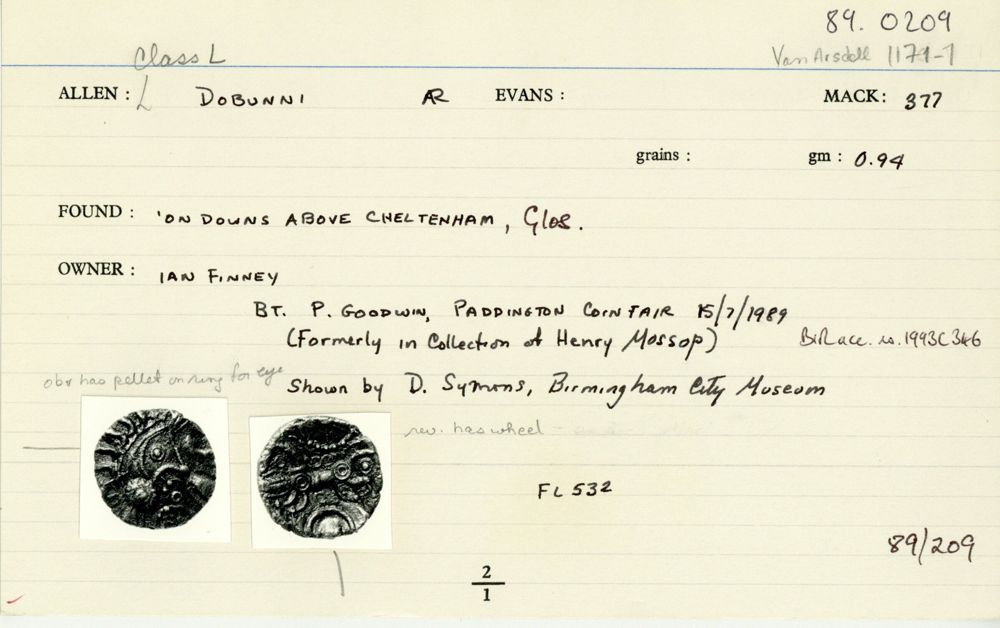 89. 0209
Class L
Van Arsdell 1171-1
ALLEN : L DOBUNNI AR EVANS : MACK: 377
grains : gm : 0.94
FOUND : 'ON DOWNS ABOVE CHELTENHAM, Glos.
OWNER : IAN FINNEY
BT. P. GOODWIN, PADDINGTON COIN FAIR 15/7/1989
(Formerly in Collection of Henry Mossop) BiR acc. no. 1993C346
obv has pellet on ring for eye
Shown by D. Symons, Birmingham City Museum
rev. has wheel
FL 532
89/209
2
1